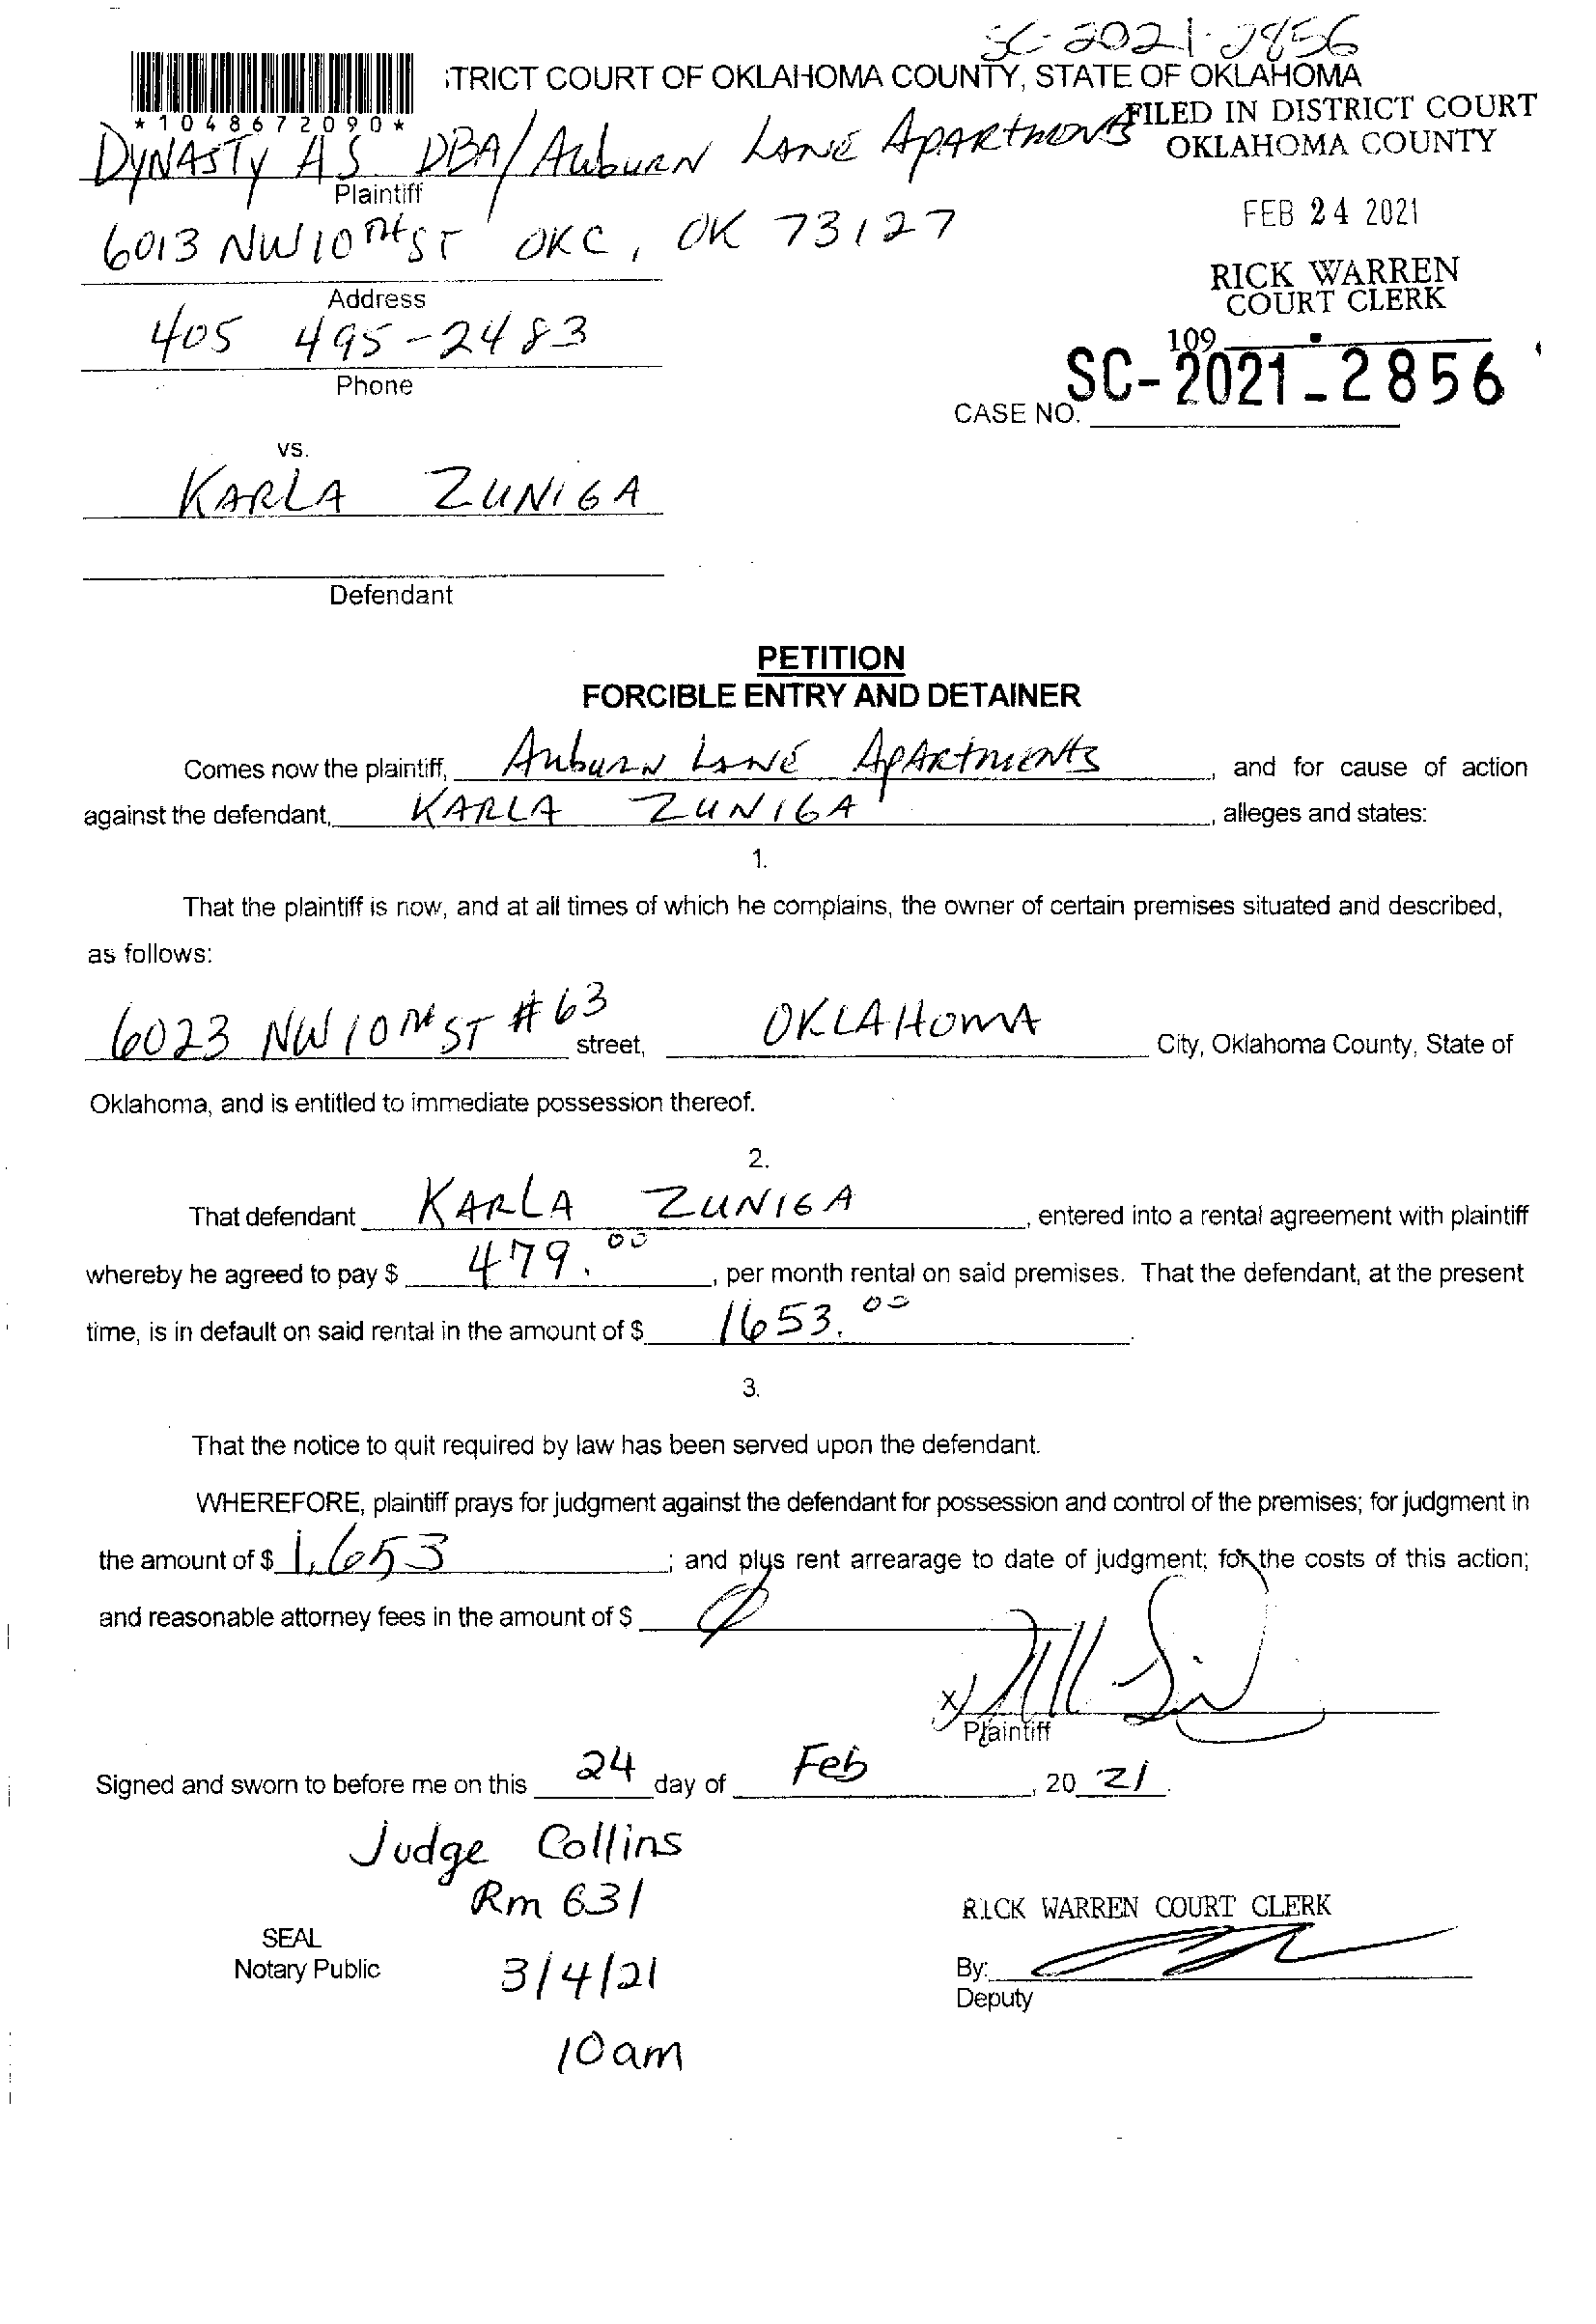 SC-2021-2856
TRICT COURT OF OKLAHOMA COUNTY, STATE OF OKLAHOMA
*1048672090*
FILED IN DISTRICT COURT
OKLAHOMA COUNTY
DYNASTY AS DBA/Auburn Lane Apartments
Plaintiff
FEB 24 2021
6013 NW 10TH ST OKC, OK 73127
Address
RICK WARREN
COURT CLERK
405 495-2483
Phone
109
CASE NO. SC-2021-2856
vs.
KARLA ZUNIGA
Defendant
PETITION
FORCIBLE ENTRY AND DETAINER
Comes now the plaintiff, Auburn Lane Apartments, and for cause of action
against the defendant, KARLA ZUNIGA, alleges and states:
1.
That the plaintiff is now, and at all times of which he complains, the owner of certain premises situated and described,
as follows:
6023 NW 10TH ST #63 street, OKLAHOMA City, Oklahoma County, State of
Oklahoma, and is entitled to immediate possession thereof.
2.
That defendant KARLA ZUNIGA, entered into a rental agreement with plaintiff
whereby he agreed to pay $ 479.00, per month rental on said premises. That the defendant, at the present
time, is in default on said rental in the amount of $ 1653.00.
3.
That the notice to quit required by law has been served upon the defendant.
WHEREFORE, plaintiff prays for judgment against the defendant for possession and control of the premises; for judgment in
the amount of $ 1,653; and plus rent arrearage to date of judgment; for the costs of this action;
and reasonable attorney fees in the amount of $ 0
x
Plaintiff
Signed and sworn to before me on this 24 day of Feb, 20 21.
Judge Collins
Rm 631
SEAL
Notary Public
3/4/21
10am
RICK WARREN COURT CLERK
By:
Deputy